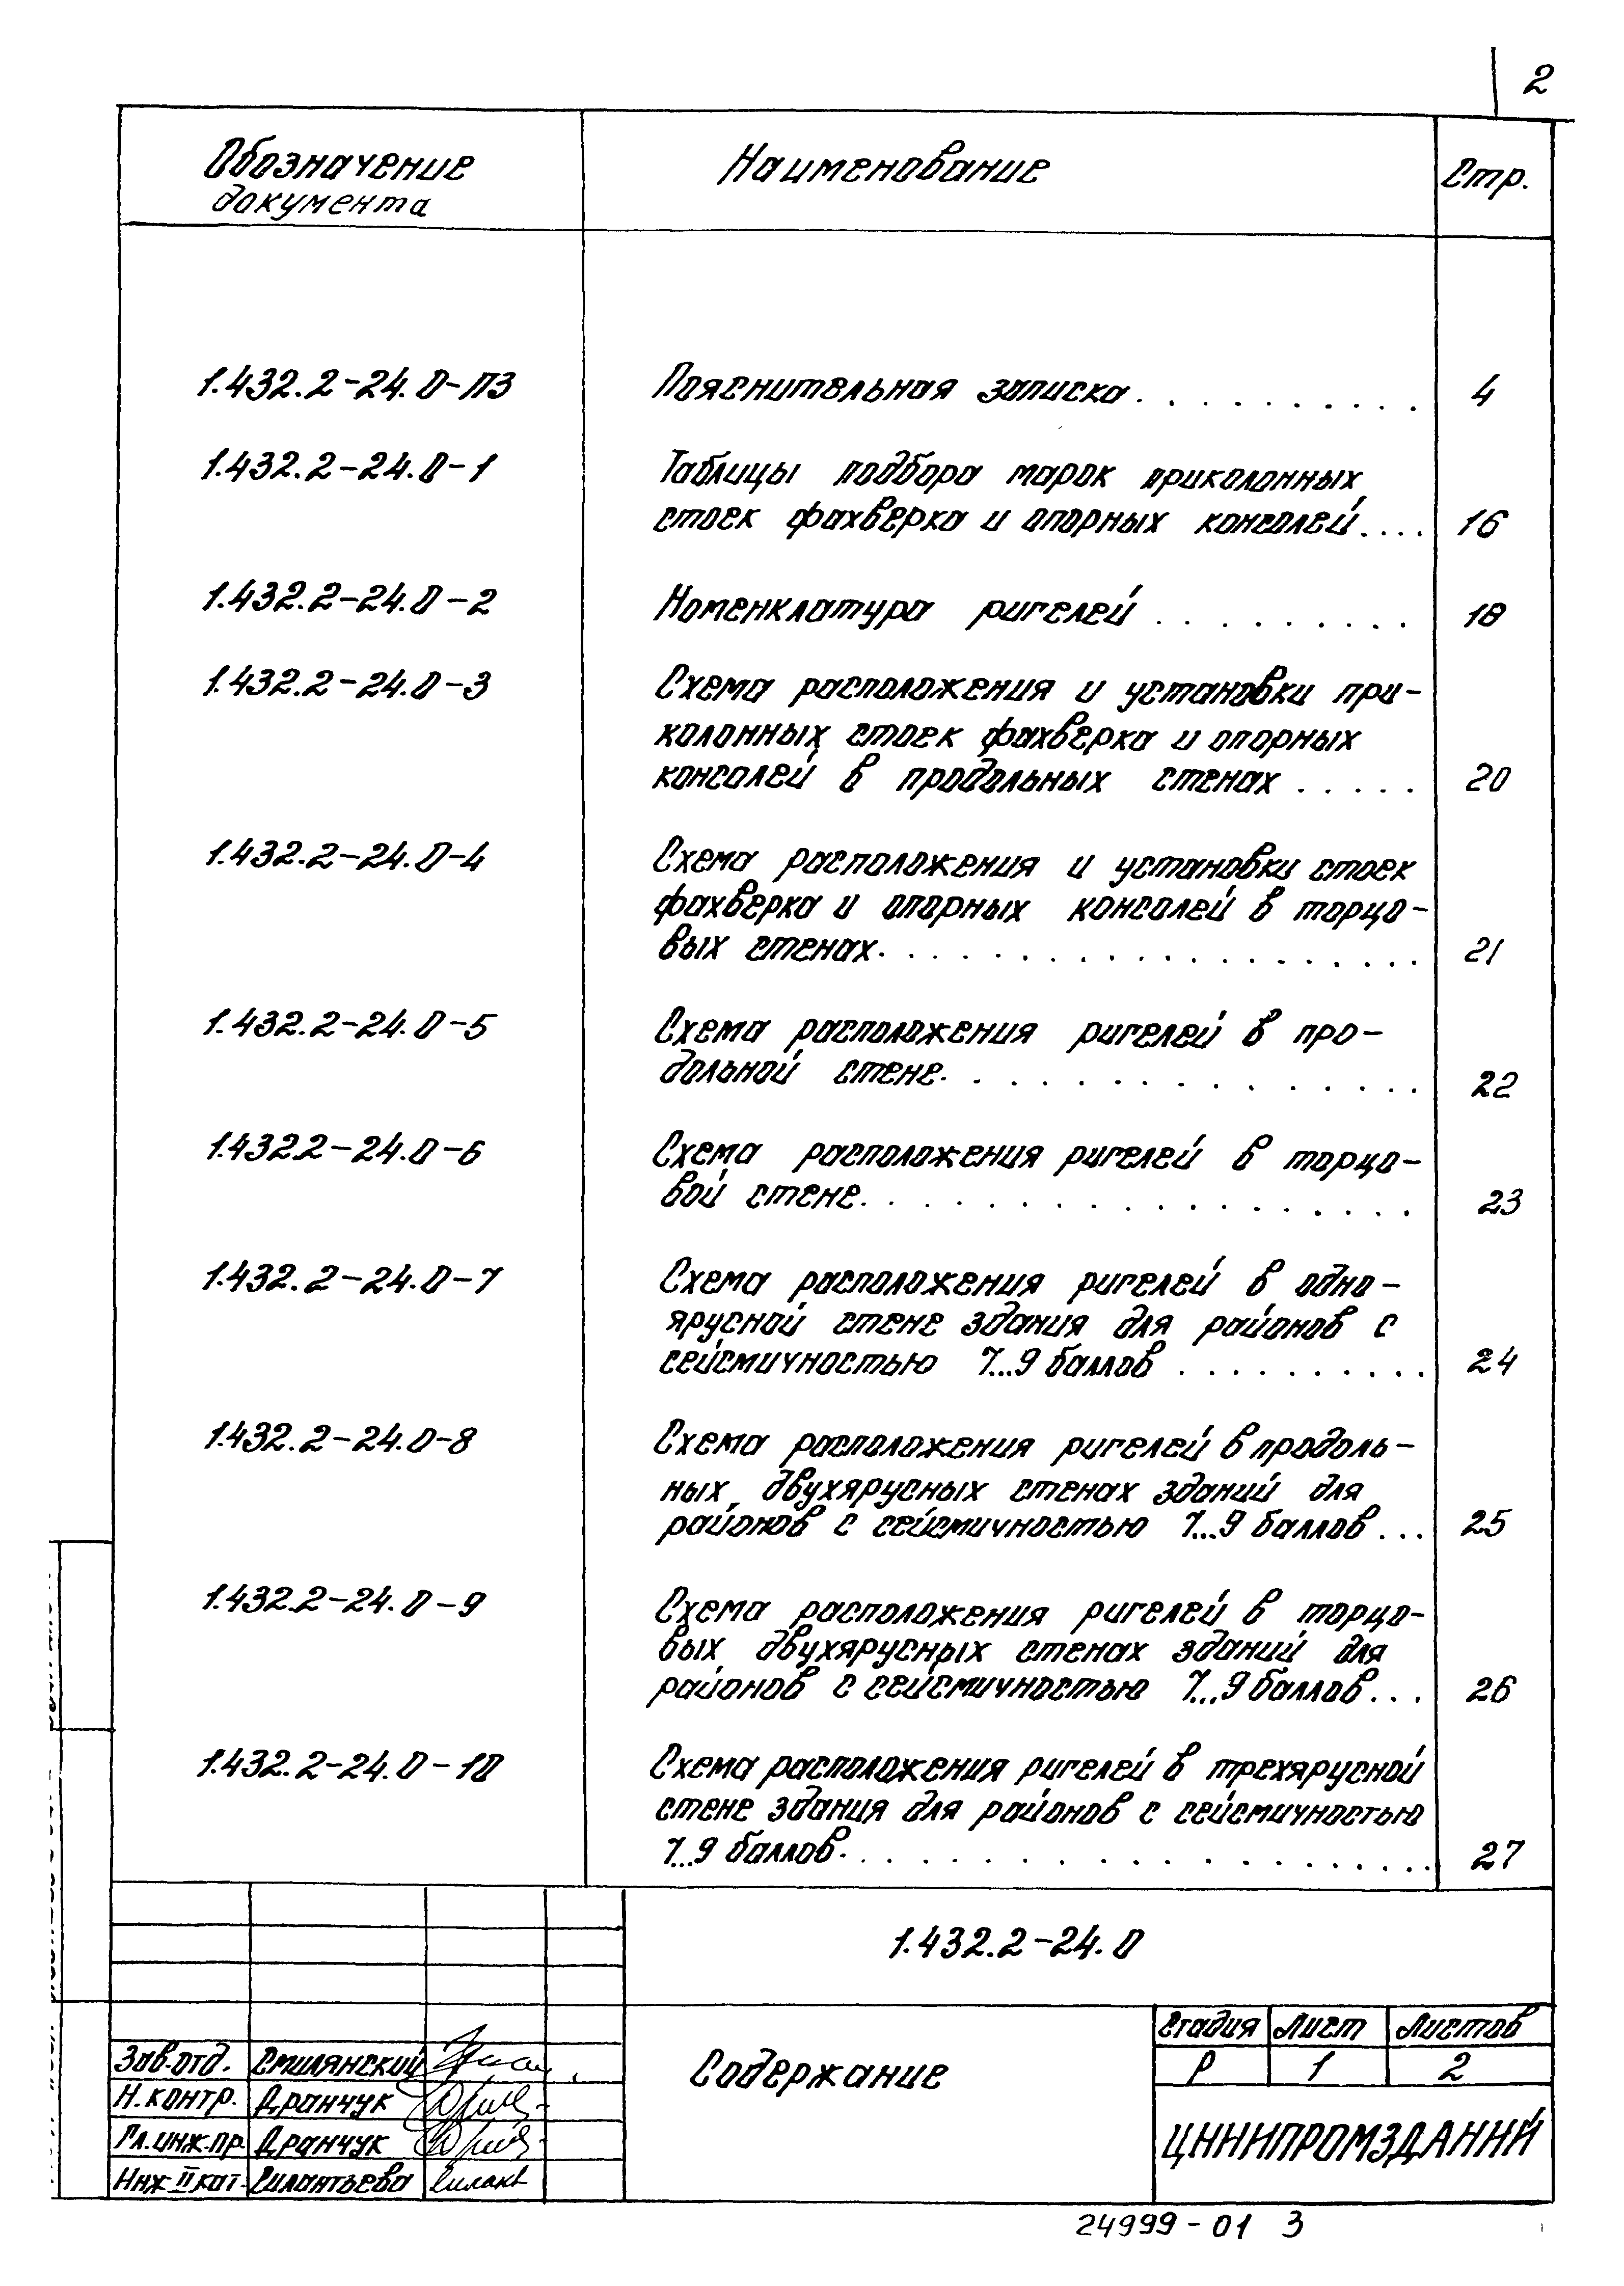 2
Обозначение документа
Наименование
Стр.
1.432.2-24.0-ПЗ
Пояснительная записка . . . . . . . . . .
4
1.432.2-24.0-1
Таблицы подбора марок приколонных
стоек фахверка и опорных консолей . . . .
16
1.432.2-24.0-2
Номенклатура ригелей . . . . . . . . .
18
1.432.2-24.0-3
Схема расположения и установки при-
колонных стоек фахверка и опорных
консолей в продольных стенах . . . . .
20
1.432.2-24.0-4
Схема расположения и установки стоек
фахверка и опорных консолей в торцо-
вых стенах . . . . . . . . . . . . . . . . . . .
21
1.432.2-24.0-5
Схема расположения ригелей в про-
дольной стене . . . . . . . . . . . . . . .
22
1.432.2-24.0-6
Схема расположения ригелей в торцо-
вой стене . . . . . . . . . . . . . . . . . .
23
1.432.2-24.0-7
Схема расположения ригелей в одно-
ярусной стене здания для районов с
сейсмичностью 7...9 баллов . . . . . . . . .
24
1.432.2-24.0-8
Схема расположения ригелей в продоль-
ных двухярусных стенах зданий для
районов с сейсмичностью 7...9 баллов . . .
25
1.432.2-24.0-9
Схема расположения ригелей в торцо-
вых двухярусных стенах зданий для
районов с сейсмичностью 7...9 баллов . . .
26
1.432.2-24.0-10
Схема расположения ригелей в трехярусной
стене здания для районов с сейсмичностью
7...9 баллов . . . . . . . . . . . . . . . . . .
27
1.432.2-24.0
Зав.отд. Смилянский
Н.контр. Дранчук
Гл.инж.пр. Дранчук
Инж II кат. Силантьева Силант
Содержание
Стадия Лист Листов
Р 1 2
ЦНИИПРОМЗДАНИЙ
24999-01 3